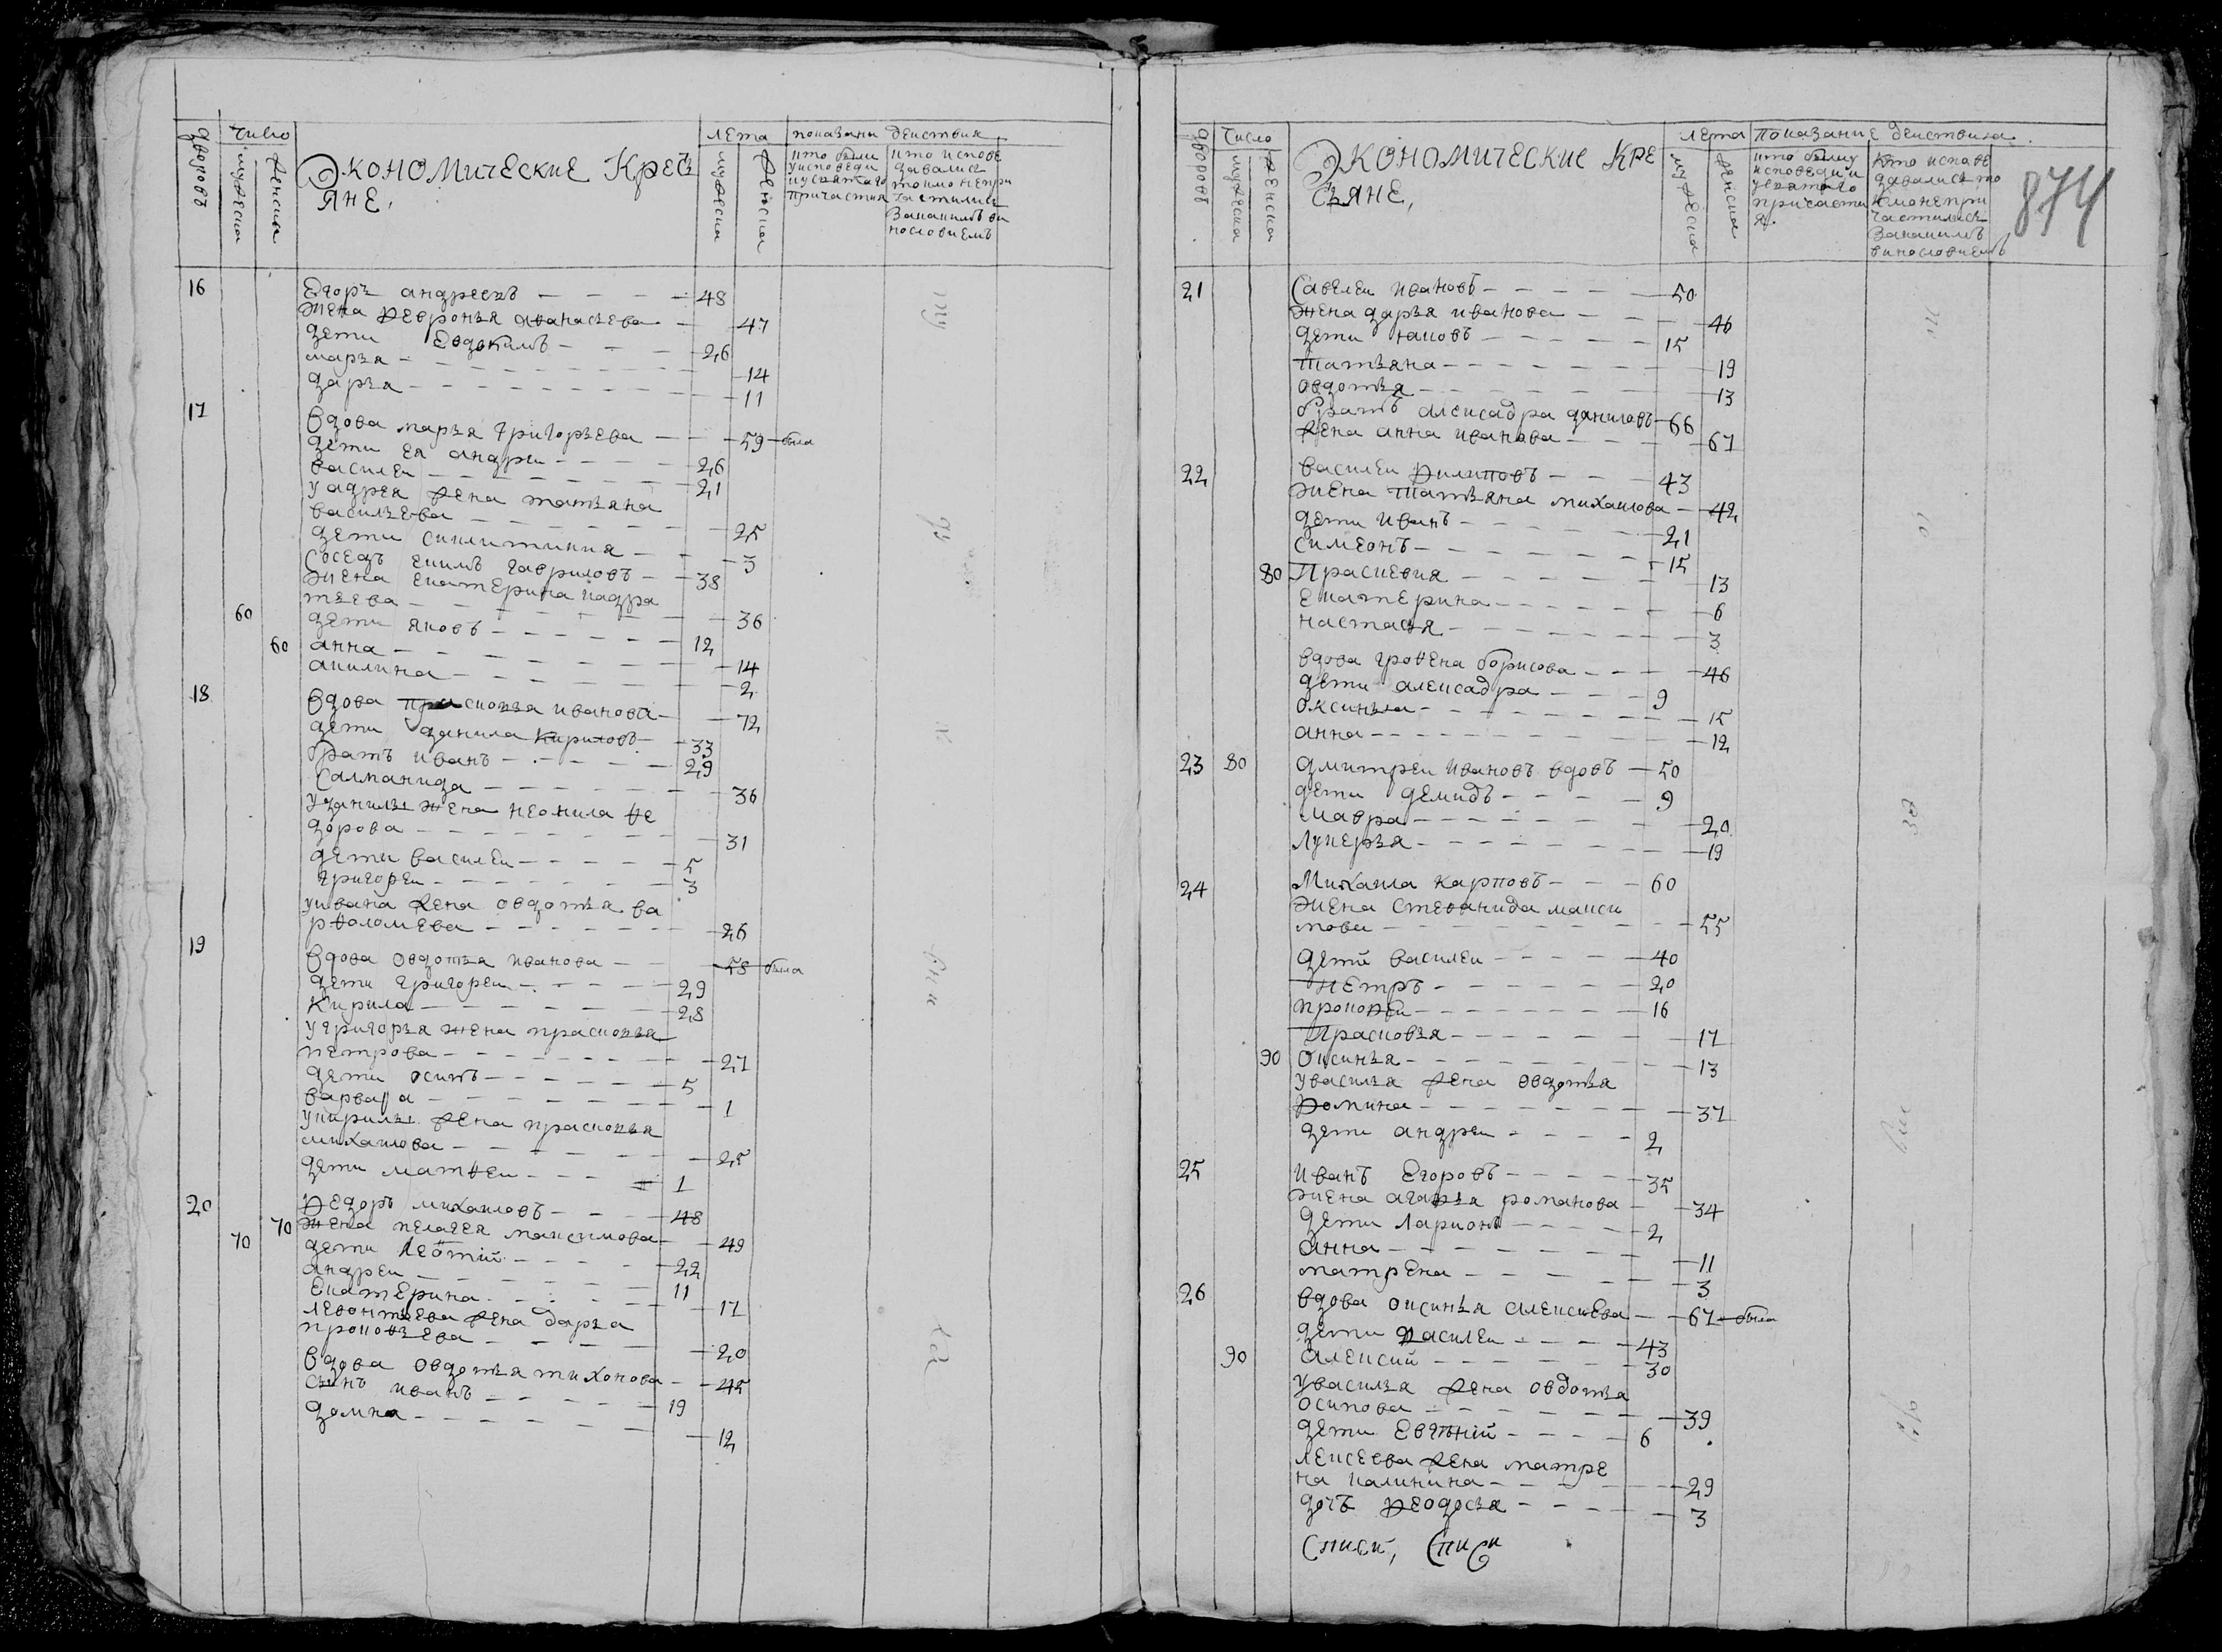 дворовъ
число
мужеска
женска
Экономические Кресъ
яне,
лета
мужеска
женска
показани деиствия
кто были
уисповеди
иусвятаго
причастия
кто испове
давались
токмо непри
частились
Закакимъ ви
нословиемъ
16 Егоръ андреевъ - - - - 48
жена Февронья афанасьева - 47
дети Евдокимъ - - - - 26
марья - - - - - - - 14
дарья - - - - - - - 11
17
вдова марья григорьева - - - 59 - была
дети ея андреи - - - - 26
василеи - - - - - - - 21
у адрея жена татьяна
васильева - - - - - - - 25
дети Сиклитикия - - - 3
Соседъ екимъ гавриловъ - - 38
жена екатерина кадра
тьева - - - - - - - 36
60 дети яковъ - - - - - - 12
60 анна - - - - - - - 14
акилина - - - - - - 2
18
вдова прасковья иванова - - 72
дети данила кириловъ - 33
братъ иванъ - - - - - 29
Салманида - - - - - - 36
уданилы жена неонила фе
дорова - - - - - - - 31
дети василеи - - - - - 5
григореи - - - - - - 3
уивана жена овдотья ва
рфоломева - - - - - - 26
19
вдова овдотья иванова - - 58 была
дети григореи - - - - - 29
Кирила - - - - - - - 28
угригорья жена прасковья
петрова - - - - - - - 27
дети осипъ - - - - - - 5
варвара - - - - - - - 1
укирилы жена прасковья
михаилова - - - - - - 25
дети матфеи - - - 1
20 Федоръ михаиловъ - - - 48
70 жена пелагея максимова - - 49
70 дети леонтий - - - - - 22
андреи - - - - - - - 11
Екатерина - - - - - - 17
левонтьева жена дарья
прокофьева - - - - - 20
вдова овдотья тихонова - - 45
сынъ иванъ - - - - - 19
домна - - - - - - - 12
дворовъ
Число
мужеска
женска
Экономические Кре
сьяне,
лета
мужеска
женска
показание деиствиза
кто былиу
исповеди и
усвятаго
причасти
я.
Кто испове
давались то
кмонепри
частились
Закакимъ
винословиемъ
874
21 Савелеи ивановъ - - - - - 50
жена дарья иванова - - - - 46
дети иаковъ - - - - - 15
татьяна - - - - - - - 19
овдотья - - - - - - - 13
братъ алексадра даниловъ - 66
жена анна иванова - - - - 67
22 василеи филиповъ - - - 43
жена татьяна михаилова - 42
дети иванъ - - - - - - 21
симеонъ - - - - - - - 15
80 Праскевия - - - - - - - 13
екатерина - - - - - - - 6
настасья - - - - - - - 3
вдова грофена борисова - - - - 46
дети алексадра - - - - 9
оксинья - - - - - - - 15
анна - - - - - - - - 12
23 80 дмитреи ивановъ вдовъ - 50
дети демидъ - - - - - 9
мавра - - - - - - - 20
лукерья - - - - - - - 19
24 Михаила карповъ - - - 60
жена стефанида макси
мова - - - - - - - - 55
дети василеи - - - - - 40
петръ - - - - - - - 20
прокофеи - - - - - - - 16
Прасковья - - - - - - - 17
90 оксинья - - - - - - - 13
увасилья жена овдотья
фомина - - - - - - - 37
дети андреи - - - - - 2
25 иванъ Егоровъ - - - - - 35
жена агафья романова - - 34
дети ларионъ - - - - - 2
анна - - - - - - - - 11
матрена - - - - - - - 3
26
вдова оксинья алексиева - - 67 - была
дети василеи - - - - - 43
90 алексии - - - - - - 30
увасилья жена овдотья
осипова - - - - - - - 39
дети Евтний - - - - - 6
лексеева жена матре
на калинина - - - - - 29
дочь феодосья - - - - - 3